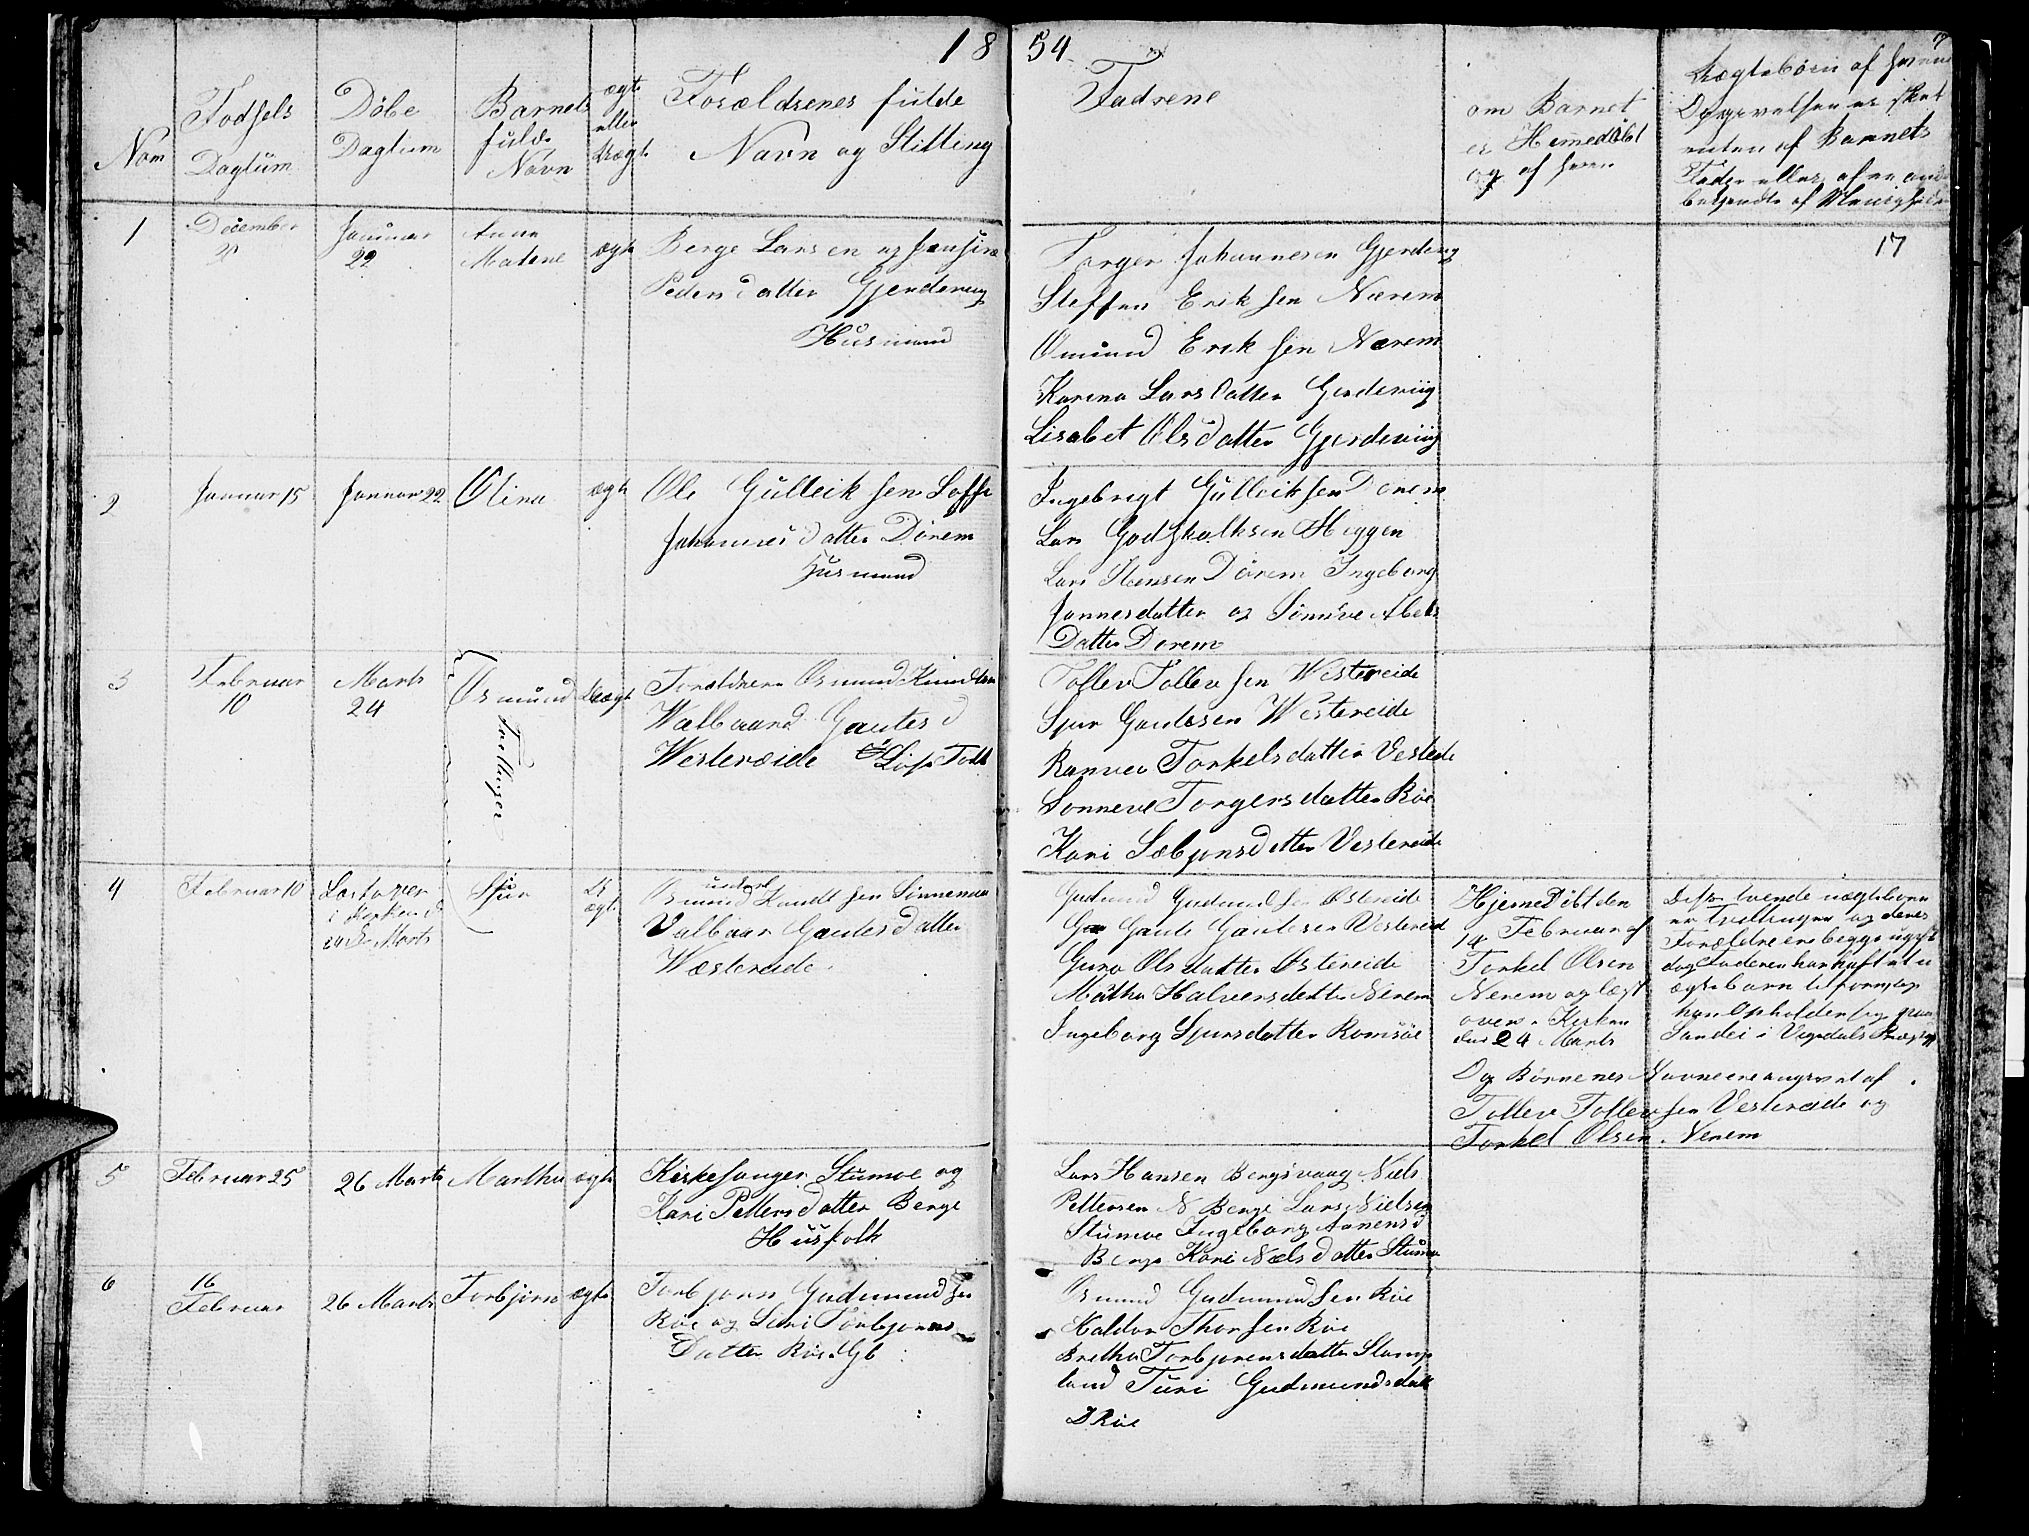 18 54
Nom
Fødsels
Dagtum
Døbe
Dagtum
Barnets
fulde
Navn
ægte
eller
Uægte
Forældrenes fulde
Navn og Stilling
Fadrene
om Barnet
er Hjemedøbt
og af
Uægtebørn af
Opgivelsen er skeet
enten af Barnets
Fader eller af
17
1
December
Januar
22
Anne
Malene
ægte
Berge Larsen og
Pedersdatter Gjerdeviig
Husmand
Torger Johannesen Gjerdeviig
Steffen Eriksen Nærem
Omund Eriksen Nærem
Karina Larsdatter Gjerdeviig
Lisabet Olsdatter Gjerdeviig
2
Januar 15
Januar 22
Olina
ægte
Ole Gulleiksen
Johannesdatter Dørem
Husmand
Ingebrigt Gulleiksen Dørem
Lars Godskalksen Heggen
Lars Hansen Dørem Ingeborg
Jannesdatter og Sønnive Abels
Datter Dorem
3
Februar
10
Marts
24
Osmund
Trellinger
Uægte
Forældrene Osmund Knudsen
Walbaard Gautesd
Westereide Løse Folk
Tollev Tollevsen Westereide
Sjur Gautesen Westereide
Ranvei Torkelsdatter Vesteeide
Sonneve Torgersdatter Røe
Kari Sæbjønsdatter Vestereide
4
Februar 10
i Kirken d
24de Marts
Sjur
U
ægte
Osmund Knudtsen
Valbaar Gautesdatter
Wæstereide
Gudmund Gudmundsen Østereide
Gaute Gautesen Vestereide
Guro Olsdatter Østereide
Martha Halversdatter Nerem
Ingeborg Sjursdatter Romsøe
HjemeDøbt den
14 Februar af
Torkel Olsen
Nerem og læst
over i Kirken
den 24 Marts
Disse tvende uægtebørn
er Tvillinger og deres
Forældre ere begge ugift
dog Faderen har haft et u
ægtebarn tilforn og
han Opholder sig paa
Sandei i
Og Børnenes Navne ere angivet af
Tollev Tollevsen Vestereide og
Torkel Olsen Nerem
5
Februar 25
26 Marts
Martha
ægte
Kirkesanger Stumoe og
Kari Pettersdatter Berge
Husfolk
Lars Hansen Bergsvaag Niels
Pettersen N Berge Lars Nielsen
Stumoe Ingeborg Aanensd
Berge Kari Nielsdatter Stumoe
6
16
Februar
26 Marts
Torbjørn
ægte
Torbjørn Gudmundsen
Røe og Siri Torbjørns
Datter Røe Gb
Osmund Gudmundsen Røe
Haldor Thorsen Røe
Bretha Torbjørensdatter Stamp
land Turi Gudmundsdat
D Røe